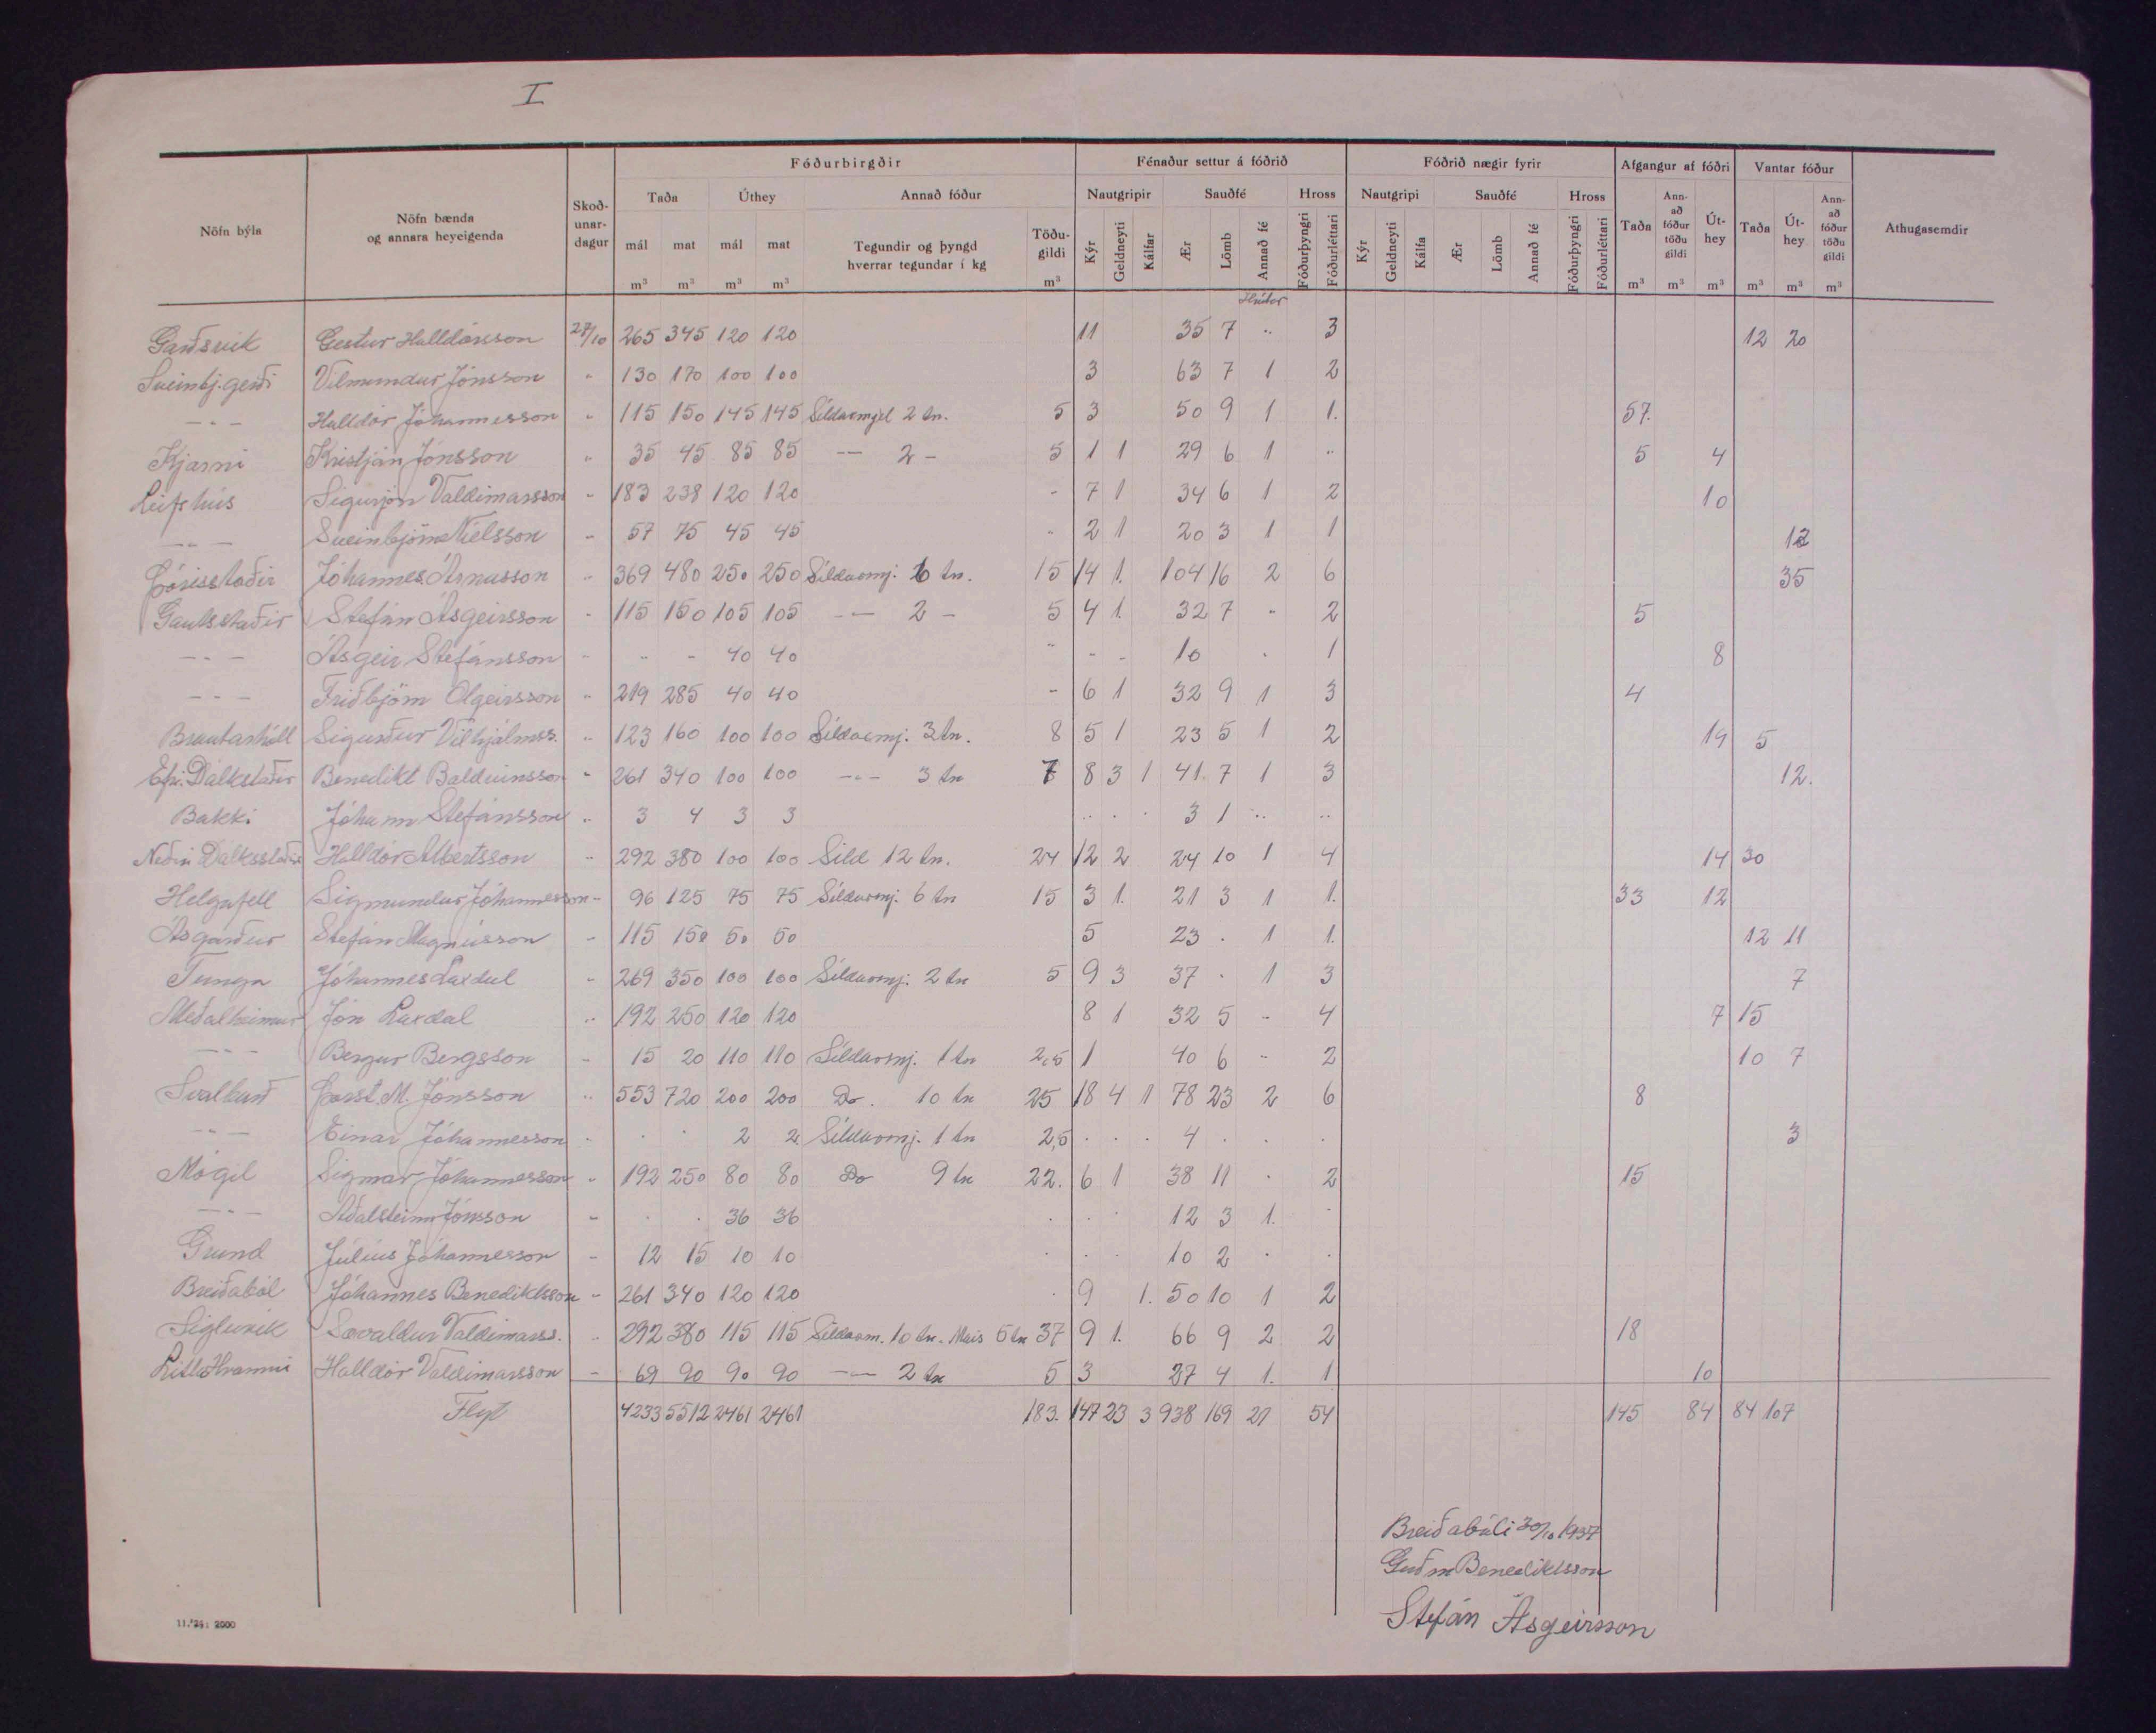 I
Nöfn býla Nöfn bænda og annara heyeigenda Skoð-unar-dagur Fóðurbirgðir Fénaður settur á fóðrið Fóðrið nægir fyrir Afgangur af fóðri Vantar fóður Athugasemdir
Taða Úthey Annað fóður Nautgripir Sauðfé Hross Nautgripi Sauðfé Hross Taða Ann-að fóður töðu gildi Út-hey Taða Út-hey Ann-að fóður töðu gildi
mál mat mál mat Tegundir og þyngd hverrar tegundar í kg Töðu-gildi Kýr Geldneyti Kálfar Ær Lömb Annað fé Fóðurþyngri Fóðurléttari Kýr Geldneyti Kálfa Ær Lömb Annað fé Fóðurþyngri Fóðurléttari
m³ m³ m³ m³ m³ m³ m³ m³ m³ m³ m³
Hrútar
Garðsvík Gestur Halldórsson 27/10 265 345 120 120 11 35 7 .. 3 12 20
Sveinbj.gerði Vilmundur Jónsson " 130 170 100 100 3 63 7 1 2
- " - Halldór Jóhannesson " 115 150 145 145 Síldarmjel 2 tn. 5 3 50 9 1 1. 57.
Kjarni Kristján Jónsson " 35 45 85 85 -"- 2 - 5 1 1 29 6 1 " 5 4
Leifshús Sigurjón Valdimarsson " 183 238 120 120 - 7 1 34 6 1 2 10
- " - Sveinbjörn Níelsson " 57 75 45 45 " 2 1 20 3 1 1 12
Þórisstaðir Jóhannes Árnason " 369 480 250 250 Síldarmj. 6 tn. 15 14 1. 104 16 2 6 35
Gautsstaðir Stefán Ásgeirsson " 115 150 105 105 -"- 2 - 5 4 1. 32 7 " 2 5
- " - Ásgeir Stefánsson " " - 40 40 " " - 10 . 1 8
- " - Friðbjörn Olgeirsson " 219 285 40 40 - 6 1 32 9 1 3 4
Brautarhóll Sigurður Vilhjálmss. " 123 160 100 100 Síldarmj. 3 tn. 8 5 1 23 5 1 2 19 5
Efri. Dálkstaðir Benedikt Baldvinsson " 261 340 100 100 -"- 3 tn 7 8 3 1 41. 7 1 3 12.
Bakki Jóhann Stefánsson " 3 4 3 3 .. . . 3 1 .. ..
Neðri Dálksstaðir Halldór Albertsson " 292 380 100 100 Síld 12 tn. 24 12 2 24 10 1 4 14 30
Helgafell Sigmundur Jóhannesson - 96 125 75 75 Síldarmj. 6 tn 15 3 1. 21 3 1 1. 33 12
Ásgarður Stefán Magnússon - 115 150 50 50 5 23 . 1 1. 12 11
Tunga Jóhannes Laxdal - 269 350 100 100 Síldarmj. 2 tn 5 9 3 37 . 1 3 7
Meðalheimur Jón Laxdal " 192 250 120 120 8 1 32 5 - 4 7 15
- " - Bergur Bergsson - 15 20 110 110 Síldarmj. 1 tn 2,5 1 40 6 " 2 10 7
Svalbarð Þorst. M. Jónsson " 553 720 200 200 Do. 10 tn 25 18 4 1 78 23 2 6 8
- " - Einar Jóhannesson . . . 2 2 Síldarmj. 1 tn 2,5 . . . 4 . . . 3
Mógil Sigmar Jóhannesson " 192 250 80 80 Do 9 tn 22. 6 1 38 11 . 2 15
- " - Aðalsteinn Jónsson - . . 36 36 . . . 12 3 1. .
Grund Júlíus Jóhannesson - 12 15 10 10 . . . 10 2 . .
Breiðaból Jóhannes Benediktsson - 261 340 120 120 . 9 1. 50 10 1 2
Sigluvík Sævaldur Valdimarss. . 292 380 115 115 Síldarm. 10 tn. Mais 5 tn 37 9 1. 66 9 2 2 18
Litli Hvammi Halldór Valdimarsson - 69 90 90 90 -"- 2 tn 5 3 27 4 1. 1 10
Flyt 4233 5512 2461 2461 183. 147 23 3 938 169 21 54 145 84 84 107
Breiðabóli 30/10 1937
Guðm Benediktsson
Stefán Ásgeirsson
11.'34: 2000